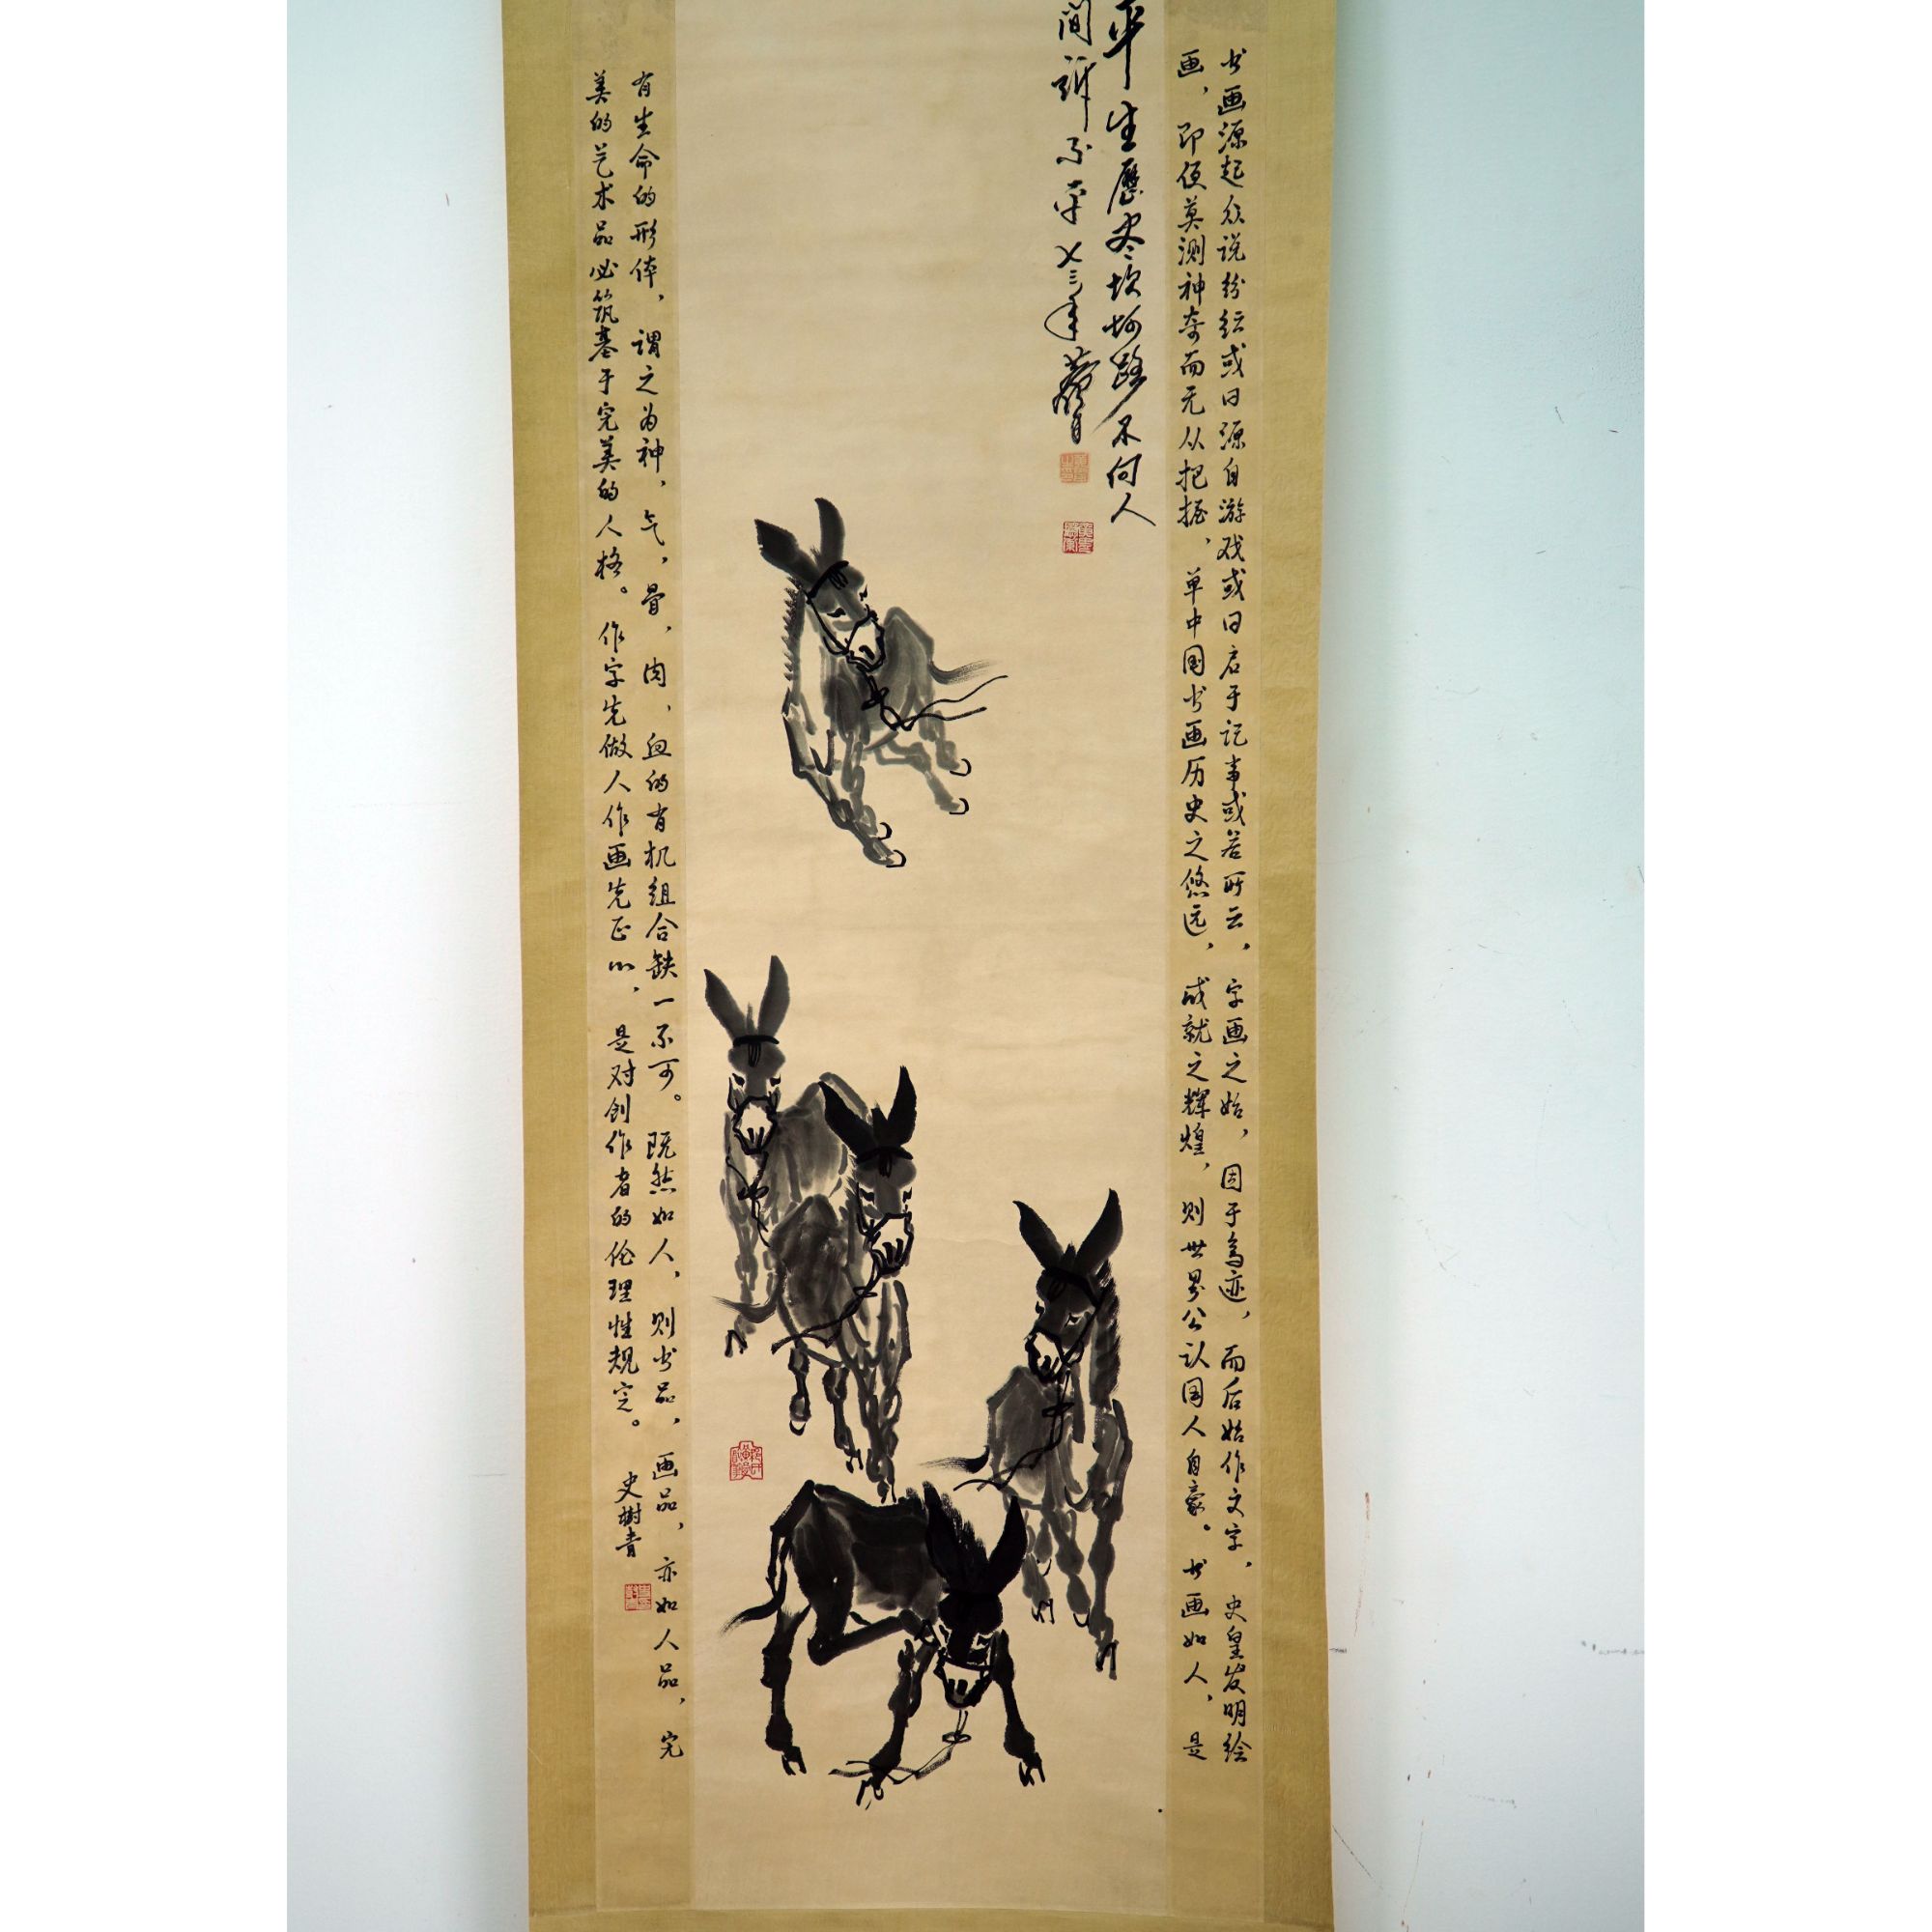 书画源起众说纷纭或曰源自游戏或曰启于记事或若所云，字画之始，因于鸟迹，而后始作文字，史皇发明绘
画，即便莫测神奇而无从把握，单中国书画历史之悠远，成就之辉煌，则世界公认国人自豪。书画如人，是
平生历尽坎坷路不向人
间诉不平七三年黄胄
有生命的形体，谓之为神，气，骨，肉，血的有机组合缺一不可。既然如人，则书品，画品，亦如人品，完
美的艺术品必筑基于完美的人格。作字先做人作画先正心，是对创作者的伦理性规定。史树青